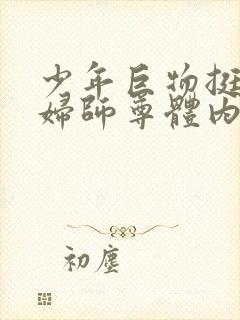 少年巨物挺
婦師尊體內
初塵